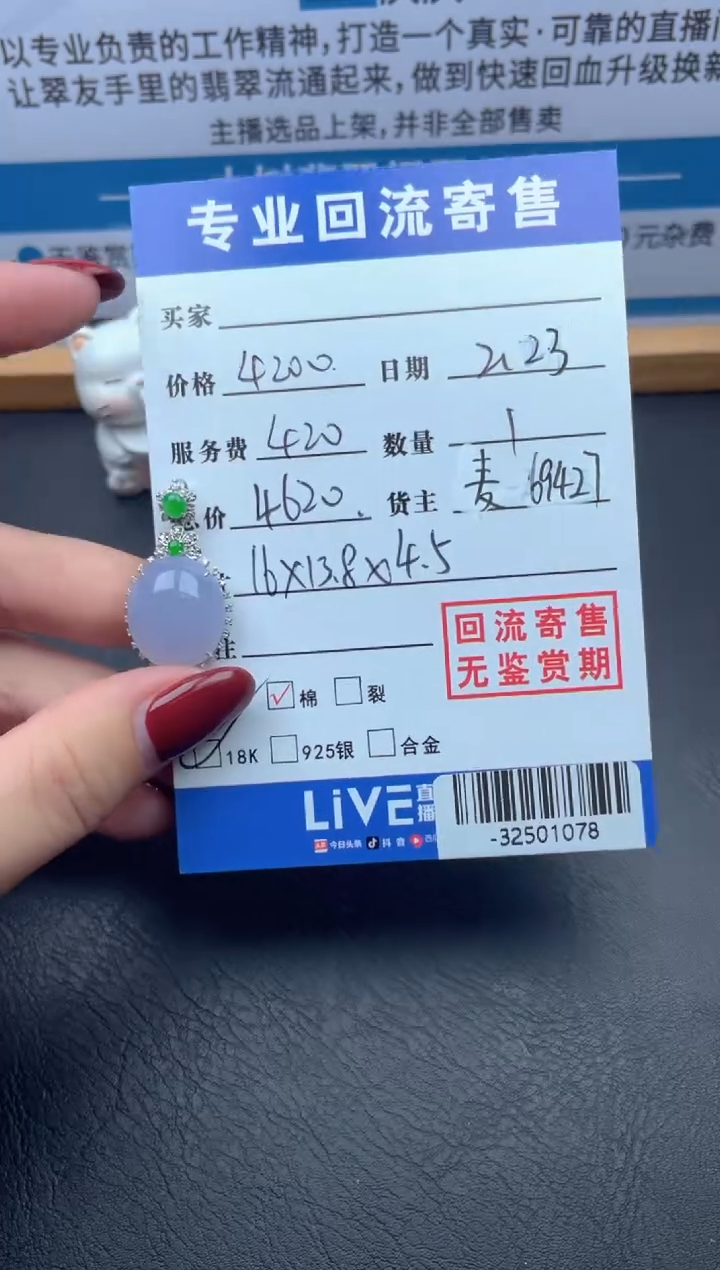 以专业负责的工作精神,打造一个真实·可靠的直播
让翠友手里的翡翠流通起来,做到快速回血升级换新
主播选品上架,并非全部售卖
元杂费
专业回流寄售
买家
价格 4200. 日期 2.23
服务费 420 数量 1
总价 4620. 货主 麦 69427
16×13.8×4.5
注
回流寄售
无鉴赏期
棉 裂
18K 925银 合金
LiVE 直播
今日头条 抖音
-32501078